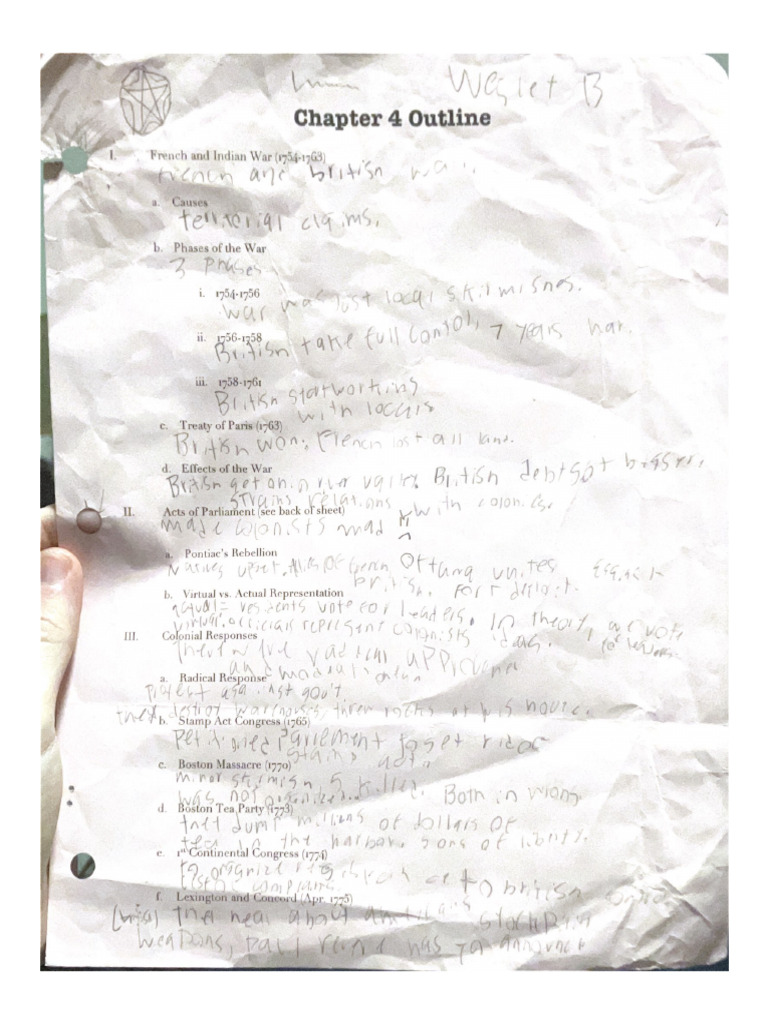 Chapter 4 Outline
I. French and Indian War (1754-1763)
French and british war.
a. Causes
territorial claims.
b. Phases of the War
3 Phases
i. 1754-1756
war was lost local skirmishes.
ii. 1756-1758
British take full control, 7 years war.
iii. 1758-1761
British start working
with locals
c. Treaty of Paris (1763)
British won; French lost all land.
d. Effects of the War
British get river valley. British debt got bigger,
strains relations with colonies.
II. Acts of Parliament (see back of sheet)
made colonists mad
a. Pontiac's Rebellion
Natives upset. Ottawa unites
british. Fort detroit.
b. Virtual vs. Actual Representation
actual = residents vote for leaders. In theory, vote
virtual: officials represent colonists ideas. for leaders
III. Colonial Responses
radical approach
and
a. Radical Response
Protest against gov't
they destroy warehouses, threw rocks at house.
b. Stamp Act Congress (1765)
Petitioned Parlement to get rid of
stamp act.
c. Boston Massacre (1770)
minor skirmish, 5 killed.
was not organized. Both in wrong.
d. Boston Tea Party (1773)
they dump millions of dollars of
tea in the harbor. sons of liberty.
e. 1st Continental Congress (1774)
to organize to british
list complaints
f. Lexington and Concord (Apr. 1775)
they hear about stockpiling
weapons, paul revere has to announce